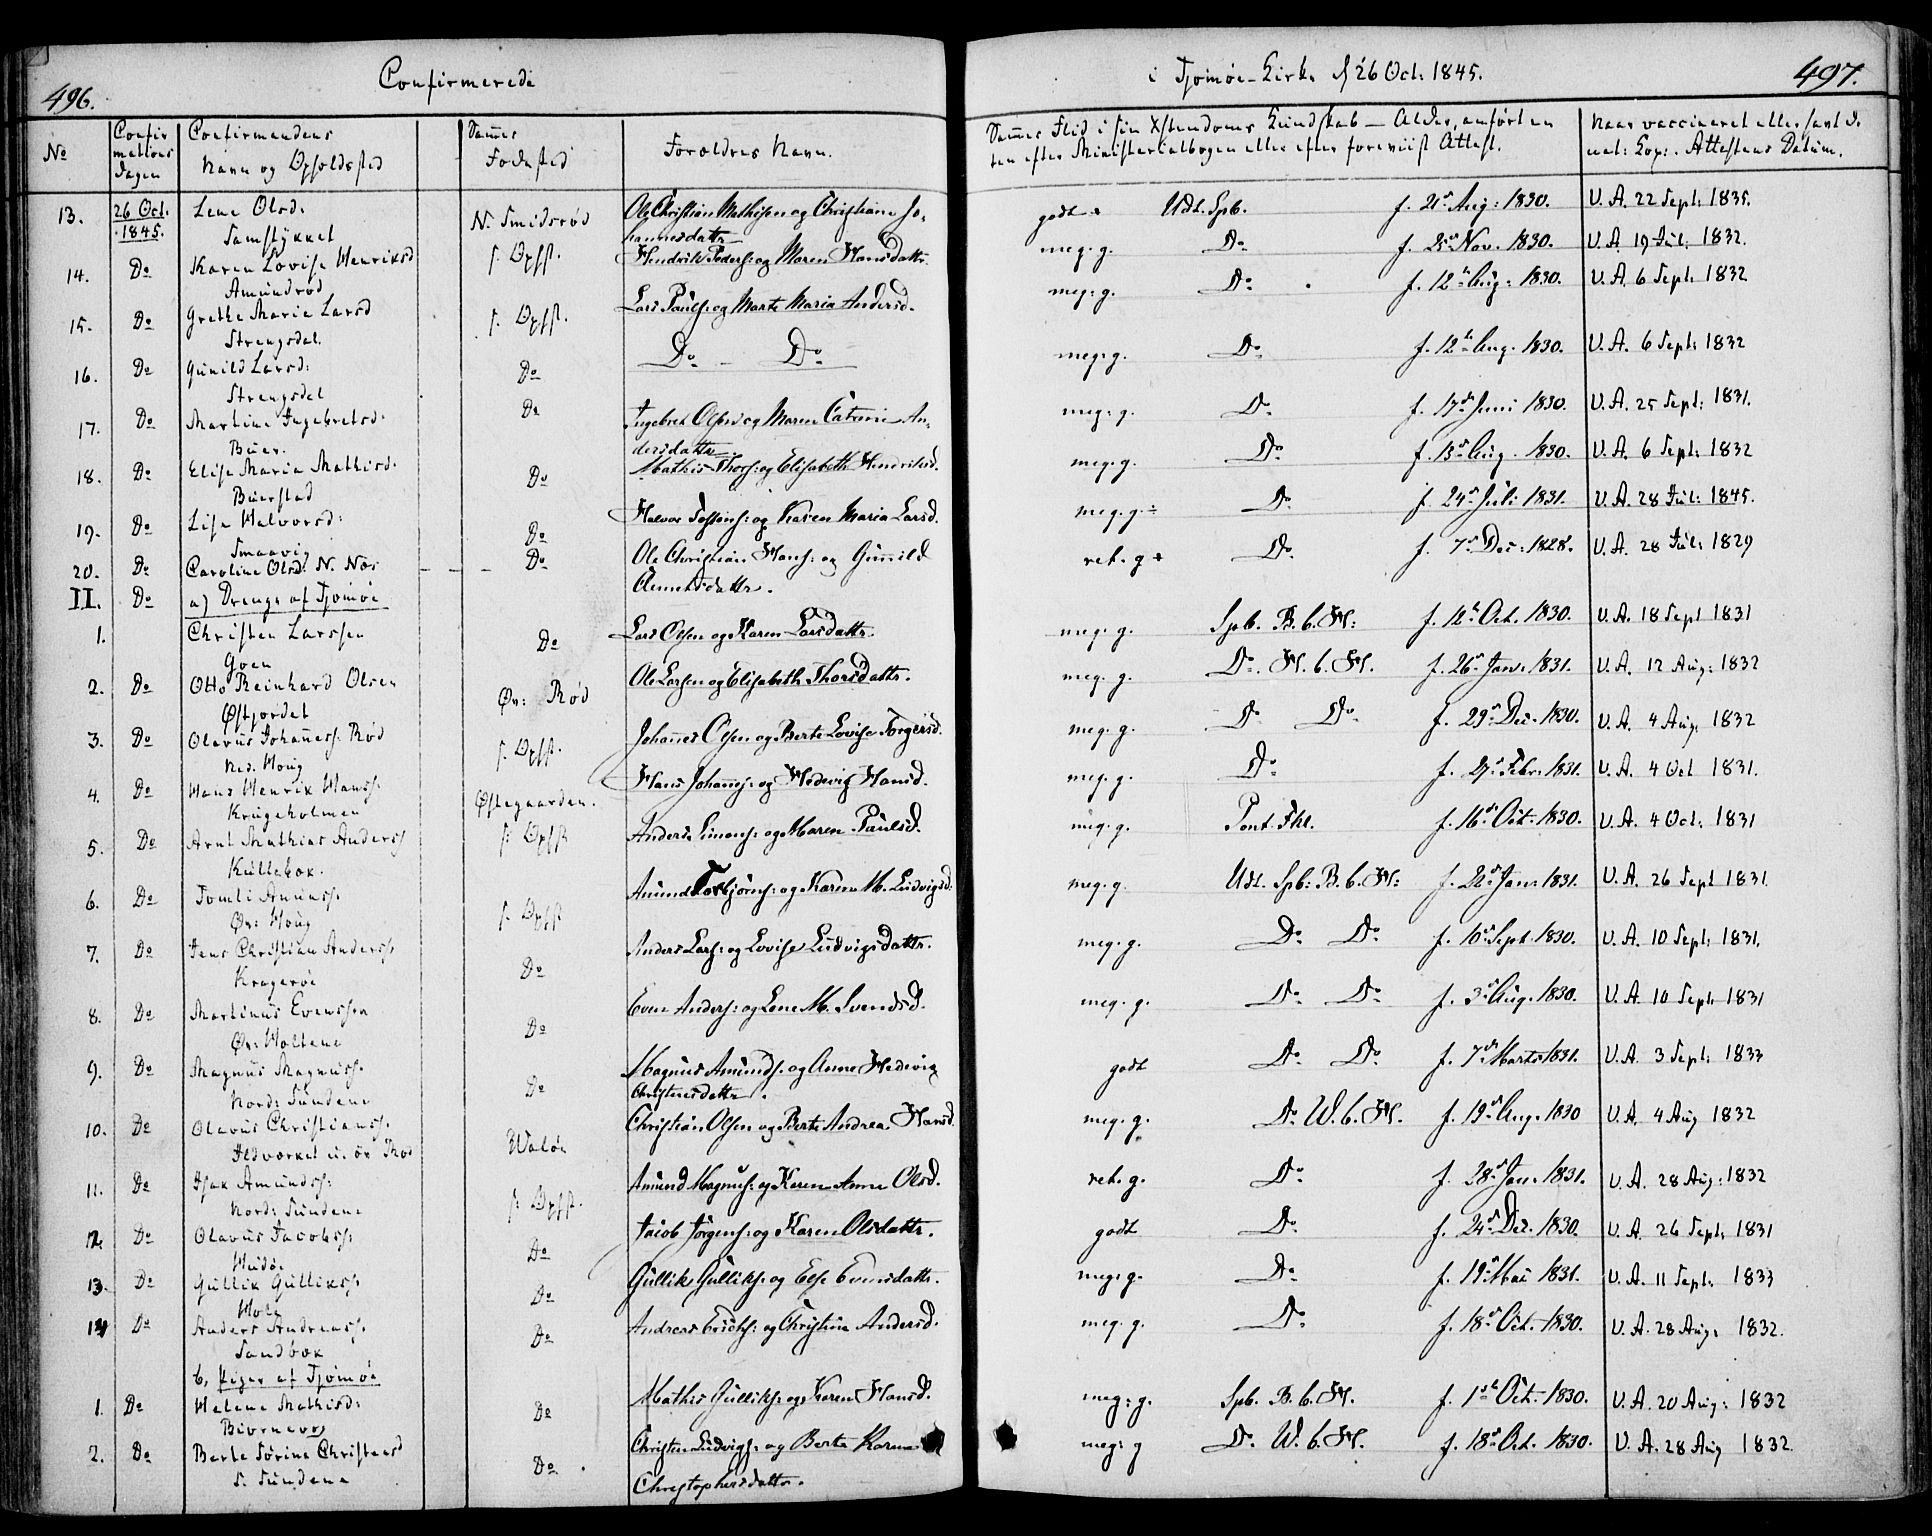 496.
Confirmerede
i Tjømøe-Kirke d 26 Oct: 1845.
497.
No
Confirmations Dagen
Confirmandens Navn og Opholdsted
Sammes Fødested
Forældres Navn.
Sammes Flid i sin Xstendoms Kundskab — Alder, anført enten efter Ministerialbogen eller efter foreviist Attest.
Naar vaccineret eller havt de nat: Kop: Attestens Datum.
13. 26 Oct. 1845. Lene Olsd: N. Smidsrød Ole Christian Mathisen og Christiane Jo- godt Udt. Spb. f. 21 Aug: 1830. V. A. 22 Sept: 1835.
hannesdattr
14. Do Karen Lovise Henriksd s. Opst. Hendrik Peders: og Maren Hansdattr. meg. g. Do f. 25 Nov. 1830. V. A. 19 Jul. 1832.
Amundrød
15. Do Grethe Marie Larsd s. Opst. Lars Pauls: og Marte Maria Andersd. meg: g. Do f. 12 Aug: 1830. V. A. 6 Sept: 1832
Strengsdal.
16. Do Gunild Larsd: Do Do — Do meg: g. Do f. 12 Aug. 1830. V. A. 6 Sept: 1832
Strengsdal
17. Do Martine Ingebretsd. Do Ingebret Olsen og Maren Catrine An- meg: g. Do f. 17 Juni 1830. V. A. 25 Sept: 1831.
Buer. dersdattr
18. Do Elise Maria Mathisd. Do Mathis Thors: og Elisabeth Hendriksd. meg. g. Do f. 13 Aug. 1830. V. A. 6 Sept: 1832
Buerstad
19. Do Lise Halvorsd: Do Halvor Tostens: og Karen Maria Larsd. meg. g. ÷ Do f. 24 Juli 1831. V. A. 28 Jul: 1845.
Smaavig
20. Do Caroline Olsd: N. Næs Do Ole Christian Hans: og Gunnild ret. g + Do f. 7 Dec: 1828. V. A. 28 Jul: 1829
Clemetsdattr.
II. Do a) Drenge af Tjømøe
1. Christen Larssen Do Lars Olsen og Karen Larsdattr. meg. g. Spb. B. b. H: f. 12 Oct. 1830. V. A. 18 Sept 1831
Goen
2. Do Otto Reinhard Olsen Øv: Rød Ole Larsen og Elisabeth Thorsdattr. meg. g. Do H. b. H. f. 26 Jan: 1831. V. A. 12 Aug: 1832
Østjordet
3. Do Olavus Johaness: Rød s. Opst. Johannes Olsen og Berte Lovise Torgersd. meg. g. Do Do f. 29 Dec. 1830. V. A. 4 Aug. 1832
Ned. Houg
4. Do Hans Henrik Hanss: Østegaarden. Hans Johans: og Hedevig Hansd. meg. g. Do f. 27 Febr: 1831. V. A. 4 Oct 1831.
Krugeholmen
5. Do Arnt Mathias Anderss s: Opst Anders Simons: og Maren Paulsd. meg. g. Pont. Fhl. f. 16 Oct. 1830. V. A. 4 Oct. 1831
Kullebok.
6. Do Tomli Amunss. s. Opst Amund Torbjørns: og Karen M. Ludvigsd. meg. g. Udt. Spb: B. b. H: f. 22 Jan: 1831. V. A. 26 Sept 1831.
Øv: Houg
7. Do Jens Christian Anderss. Do Anders Lars: og Lovise Ludvigsdattr. meg. g. Do Do f. 10 Sept. 1830. V. A. 10 Sept: 1831.
Kragerøe
8. Do Martinus Evenssen Do Even Anders: og Lene M. Svendsd. meg. g. Do Do f. 3 Aug. 1830. V. A. 10 Sept: 1831
Øv: Holtene
9. Do Magnus Magnuss. Do Magnus Amunds. og Anne Hedevig godt Do Do f. 7 Marts 1831. V. A. 3 Sept: 1833
Nord: Sundene Christensdattr.
10. Do Olavus Christianss. Waløe Christian Olsen og Berte Andrea Hansd. meg. g. Do W. b. H. f. 19 Aug. 1830 V. A. 4 Aug 1832
Ildverket u. øv Rød
11. Do Isak Amundss: s: Opst. Amund Magnus: og Karen Anne Olsd. ret. g. Do f. 28 Jan. 1831. V. A. 28 Aug: 1832
Nord: Sundene
12. Do Olavus Jacobss: Do Jacob Jørgens: og Karen Olsdattr. godt Do f. 24 Dec. 1830. V. A. 26 Sept: 1831
Huidø.
13. Do Gullik Gullikss. Do Gullik Gulliks: og Else Evensdattr. meg: g. Do f. 19 Mai 1831. V. A. 11 Sept: 1833
Holt
14 Do Anders Andreass. Do Andreas Ericks: og Christine Andersd. meg. g. Do f. 18 Oct. 1830. V. A. 28 Aug: 1832.
Sandbæk
b, Piger af Tjømøe
1. Do Helene Mathisd: Do Mathis Gulliks: og Karen Hansd. meg: g. Spb. B. b. H. f. 1 Oct. 1830. V. A. 20 Aug: 1832
Biørnevog
2. Do Berte Sørine Christensd Do Christen Ludvigs: og Berte Karine meg: g Do W. b. H. f. 18 Oct. 1830. V. A. 28 Aug 1832.
S. Sundene Christophersdattr.